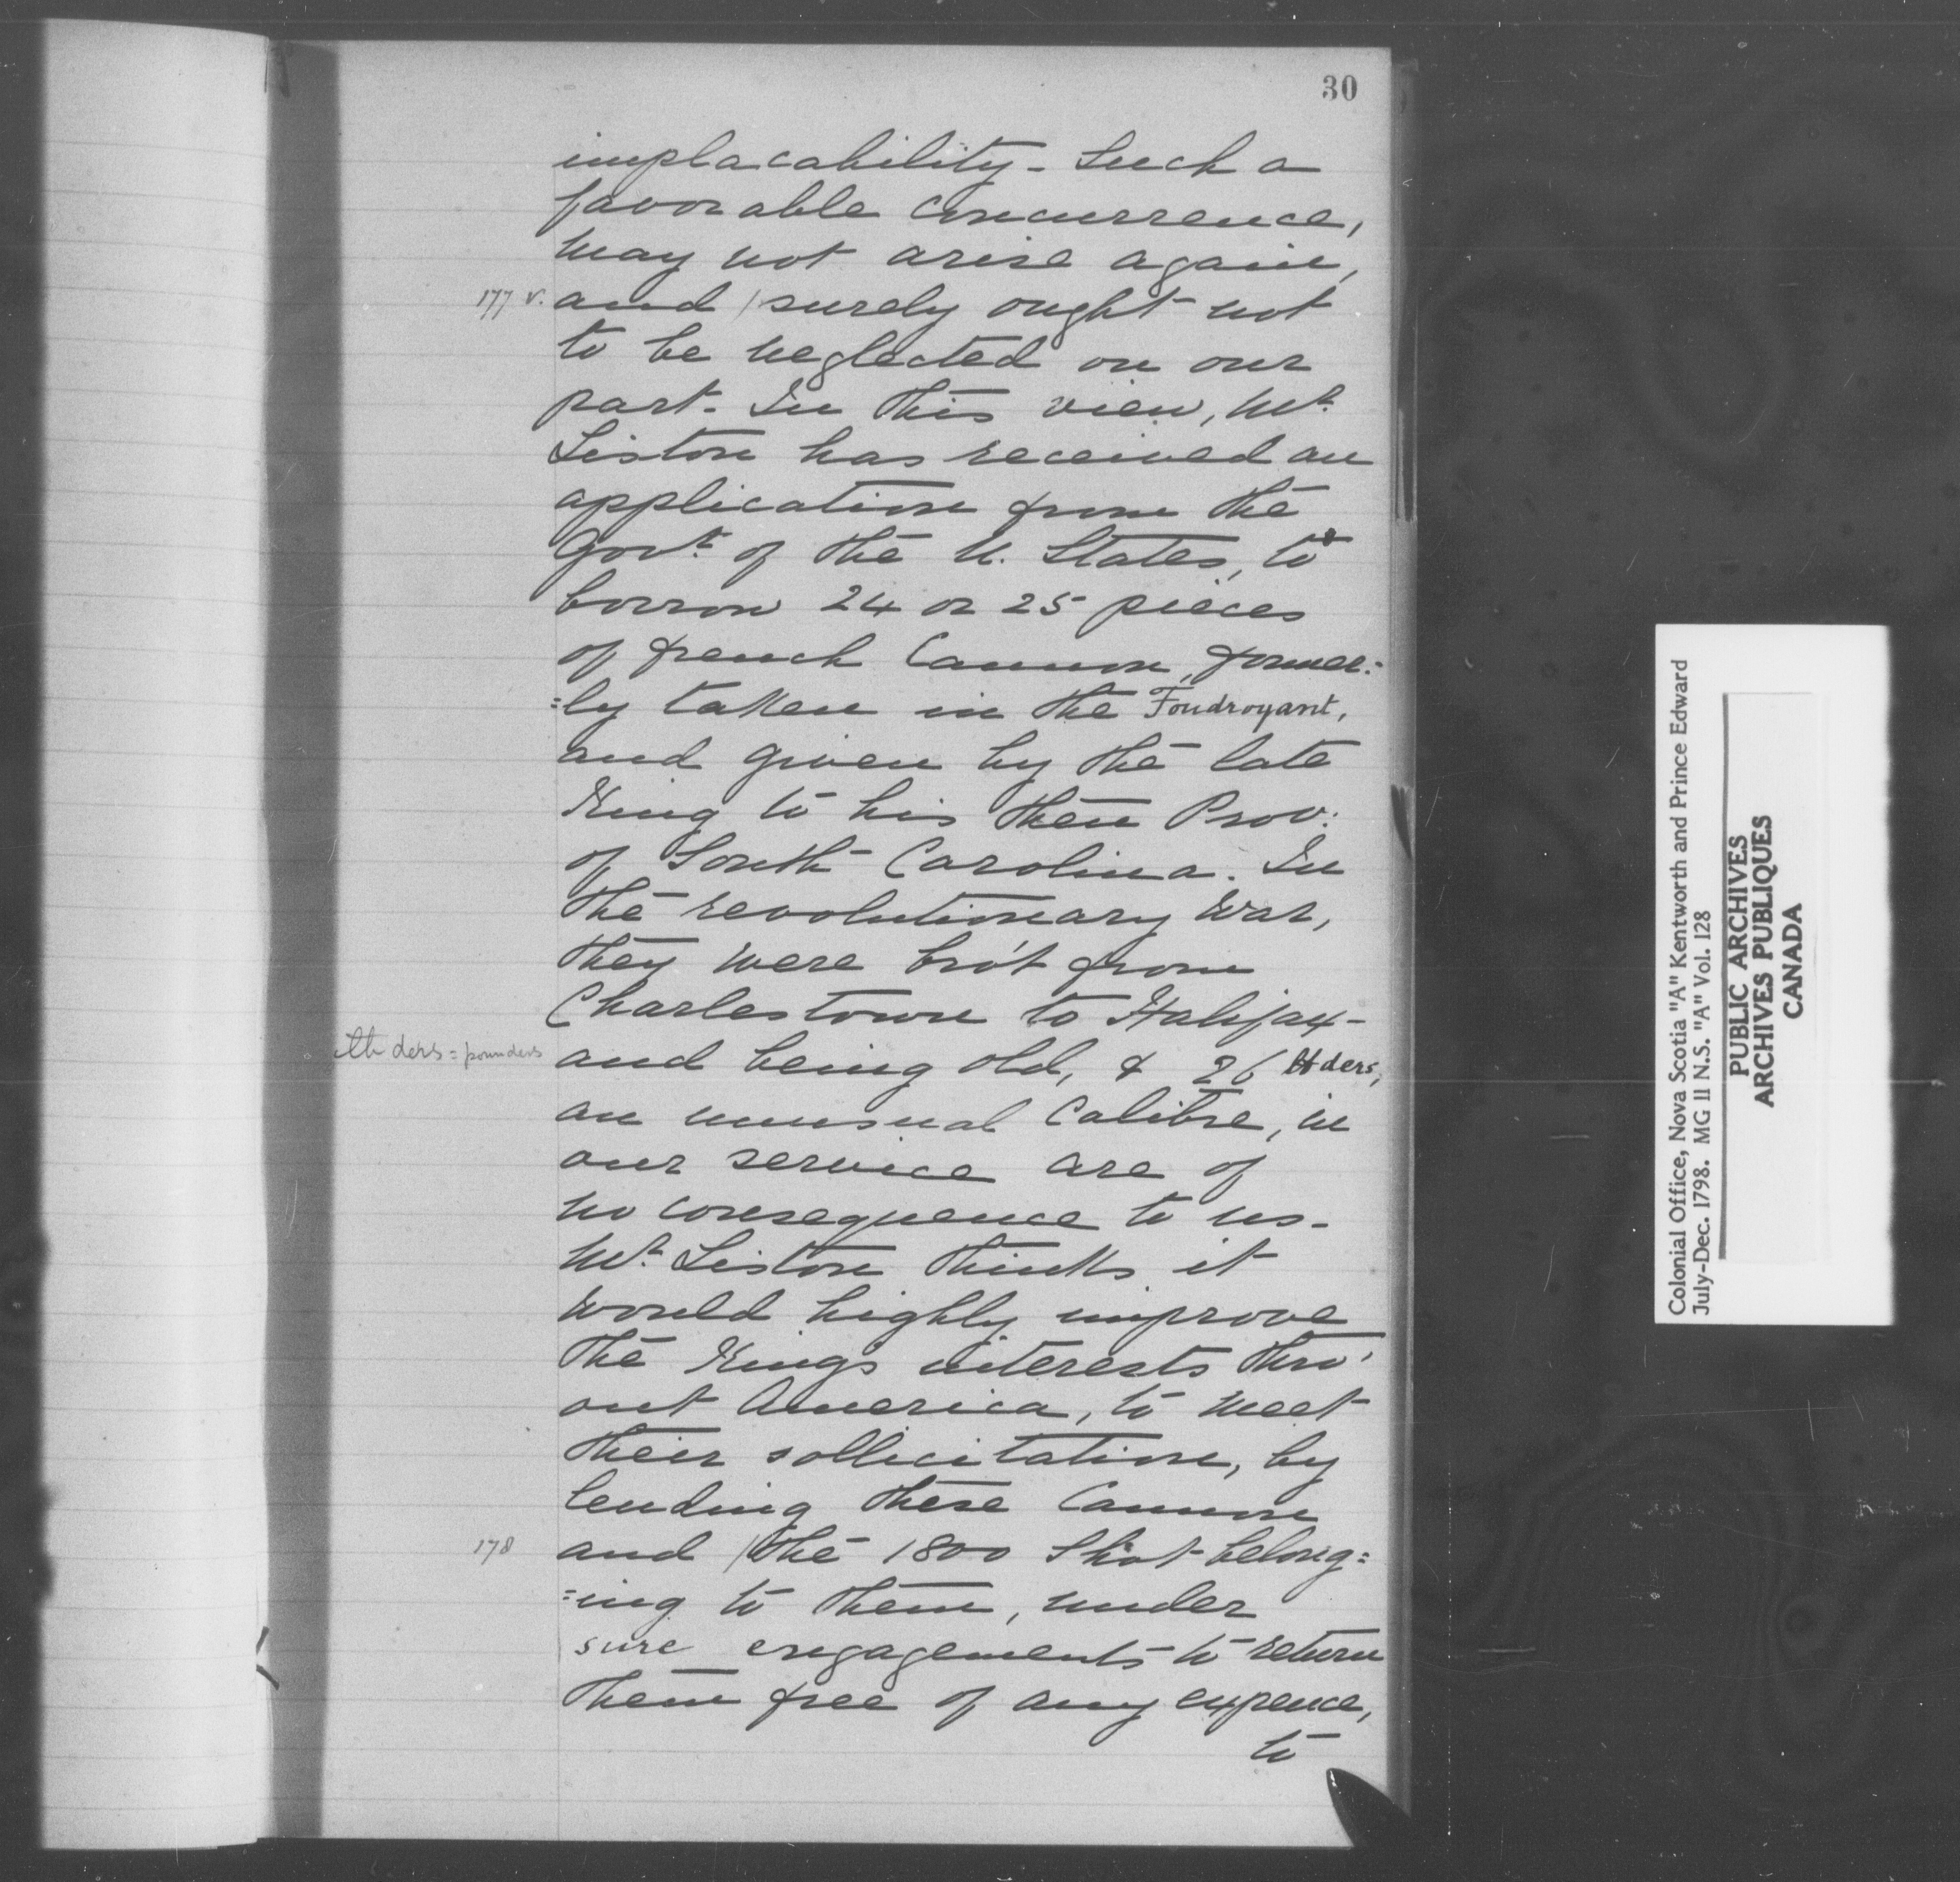 30
implacability - Such a
favorable concurrence,
may not arise again,
177 v. and / surely ought not
to be neglected on our
part. In this view, Mr.
Liston has received an
application from the
Govt. of the U. States, to
borrow 24 or 25 pieces
of french Cannon, former=
=ly taken in the Foudroyant,
and given by the late
King to his then Prov:
of South Carolina. In
the revolutionary War,
they were bro't from
Charlestown to Halifax -
and being old, & 26 ders,
ders = pounders
an unusual Calibre, in
our service are of
no consequence to us -
Mr. Liston thinks it
would highly improve
the Kings interests thro'
out America, to meet
their sollicitation, by
lending these Cannon
178 and / the 1800 Shot belong=
=ing to them, under
sure engagements to return
them free of any expence,
to
Colonial Office, Nova Scotia "A" Kentworth and Prince Edward
July-Dec. 1798. MG 11 N.S. "A" Vol. 128
PUBLIC ARCHIVES
ARCHIVES PUBLIQUES
CANADA